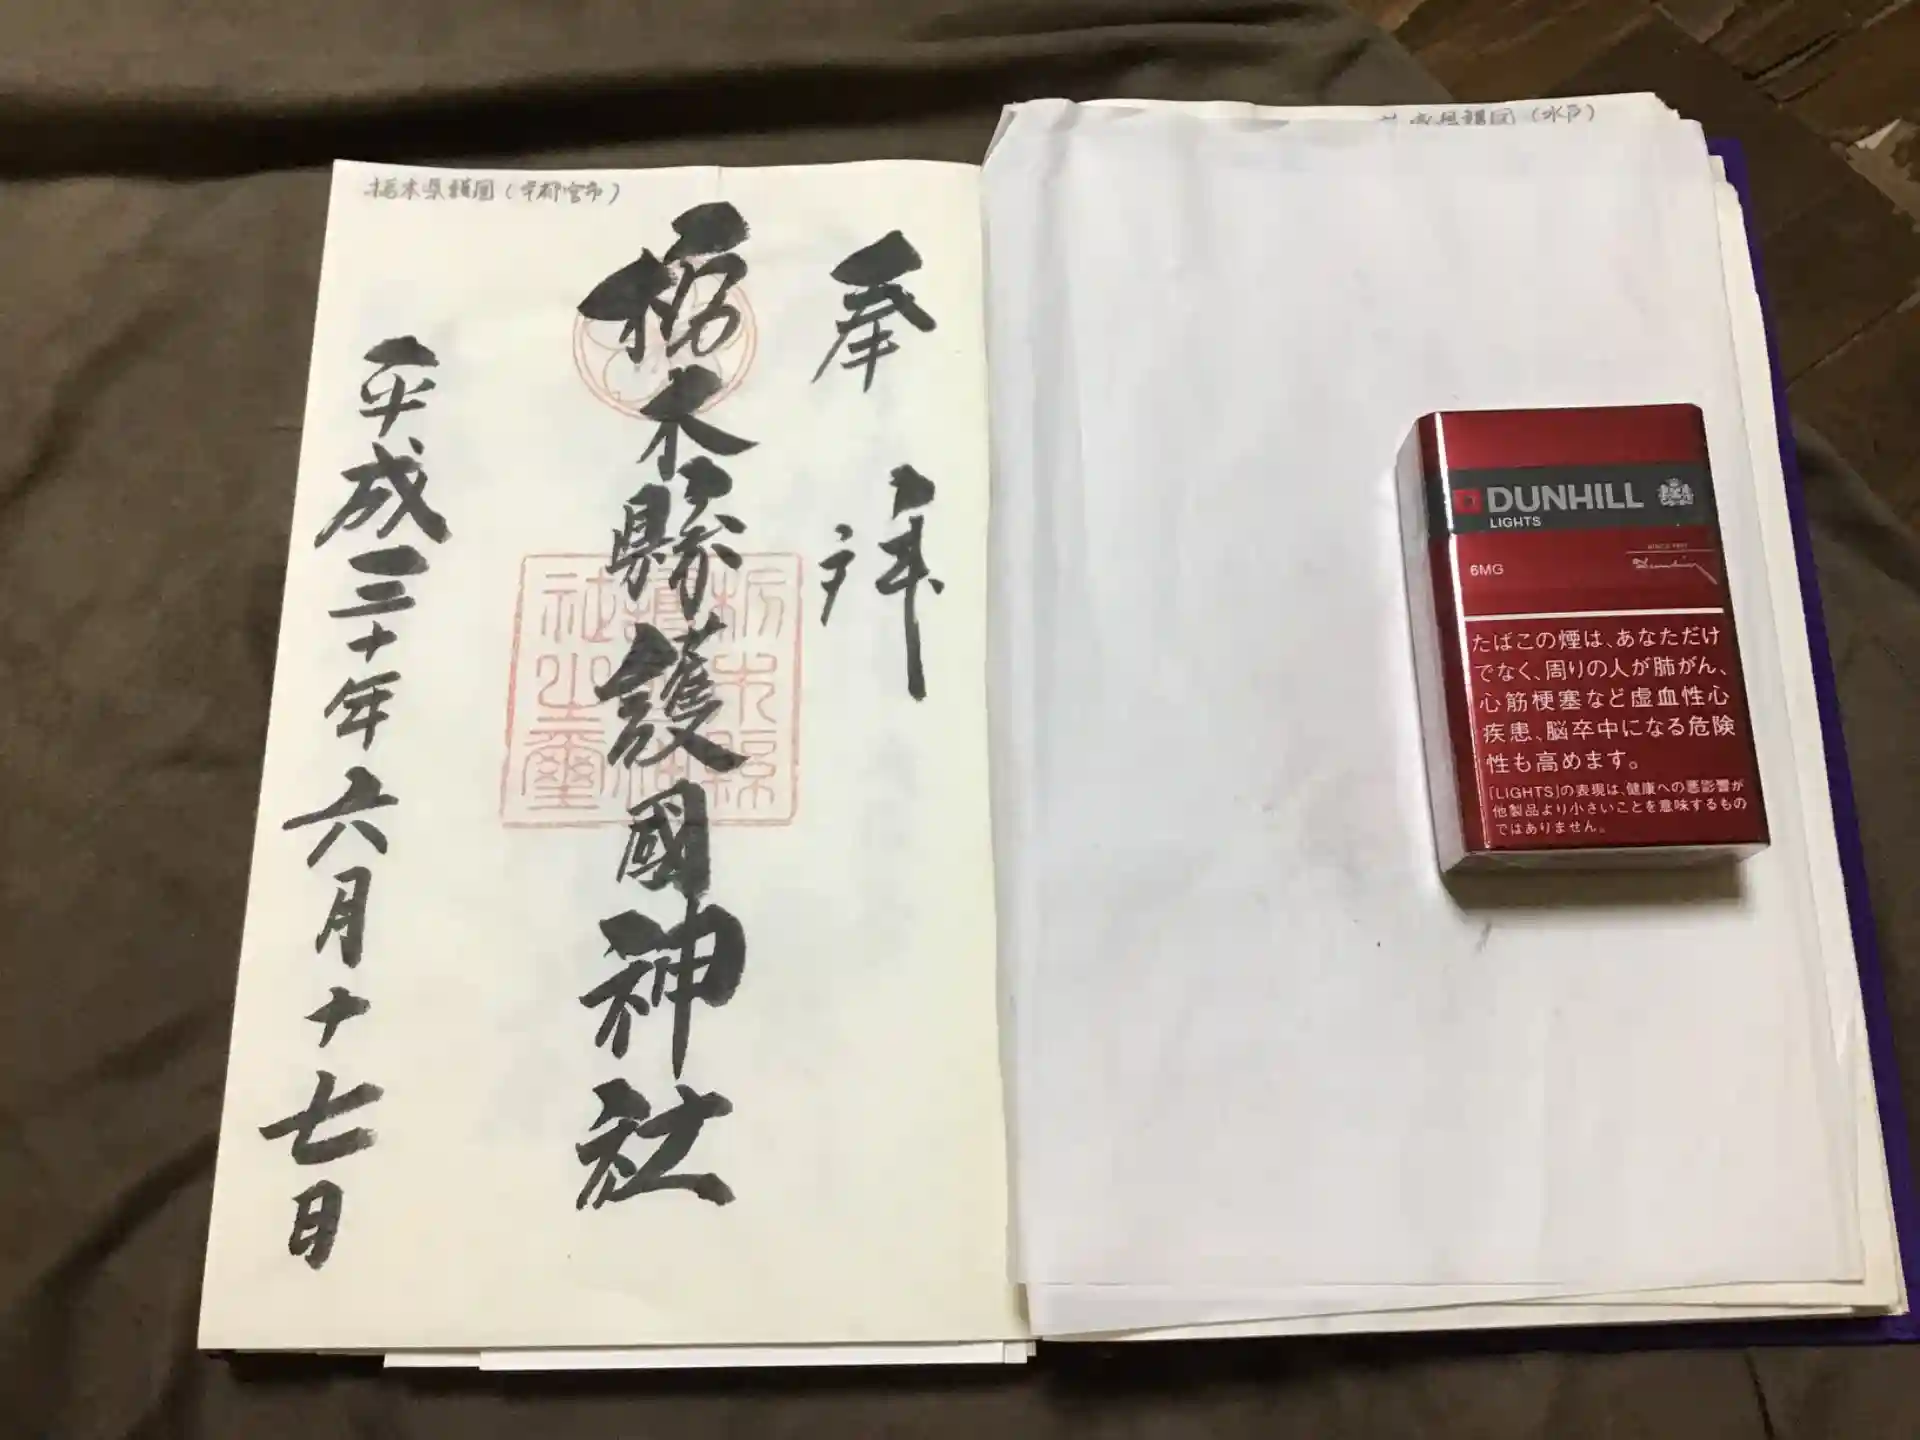 栃木県護国(宇都宮市)
奉拝
栃木縣護國神社
平成三十年六月十七日
県護国(水戸)
DUNHILL
LIGHTS
6MG
たばこの煙は、あなただけ
でなく、周りの人が肺がん、
心筋梗塞など虚血性心
疾患、脳卒中になる危険
性も高めます。
「LIGHTS」の表現は、健康への悪影響が
他製品より小さいことを意味するもの
ではありません。